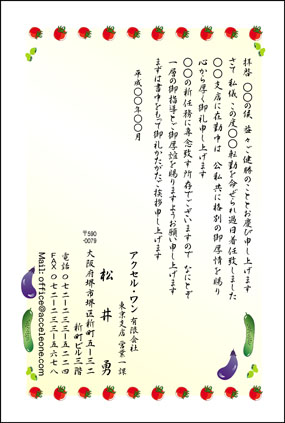 拝啓 〇〇の候、益々ご健勝のこととお慶び申し上げます
さて 私儀、この度〇〇転勤を命ぜられ過日着任致しました
〇〇支店に在勤中は 公私共に格別の御厚情を賜り
心から厚く御礼申し上げます
〇〇の新任務に専念致す所存でございますので なにとぞ
一層の御指導とご御厚誼を賜りますようお願い申し上げます
まずは書中をもって御礼かたがたご挨拶申し上げます
平成〇〇年〇〇月
アクセル・ワン有限会社
東京支店 営業一課
松井 勇
〒590
-0079
大阪府堺市堺区新町五−三二
新町ビル三階
電話 〇七二−二三三−五二二四
FAX 〇七二−二三三−五六七八
Mail: office@acceleone.com